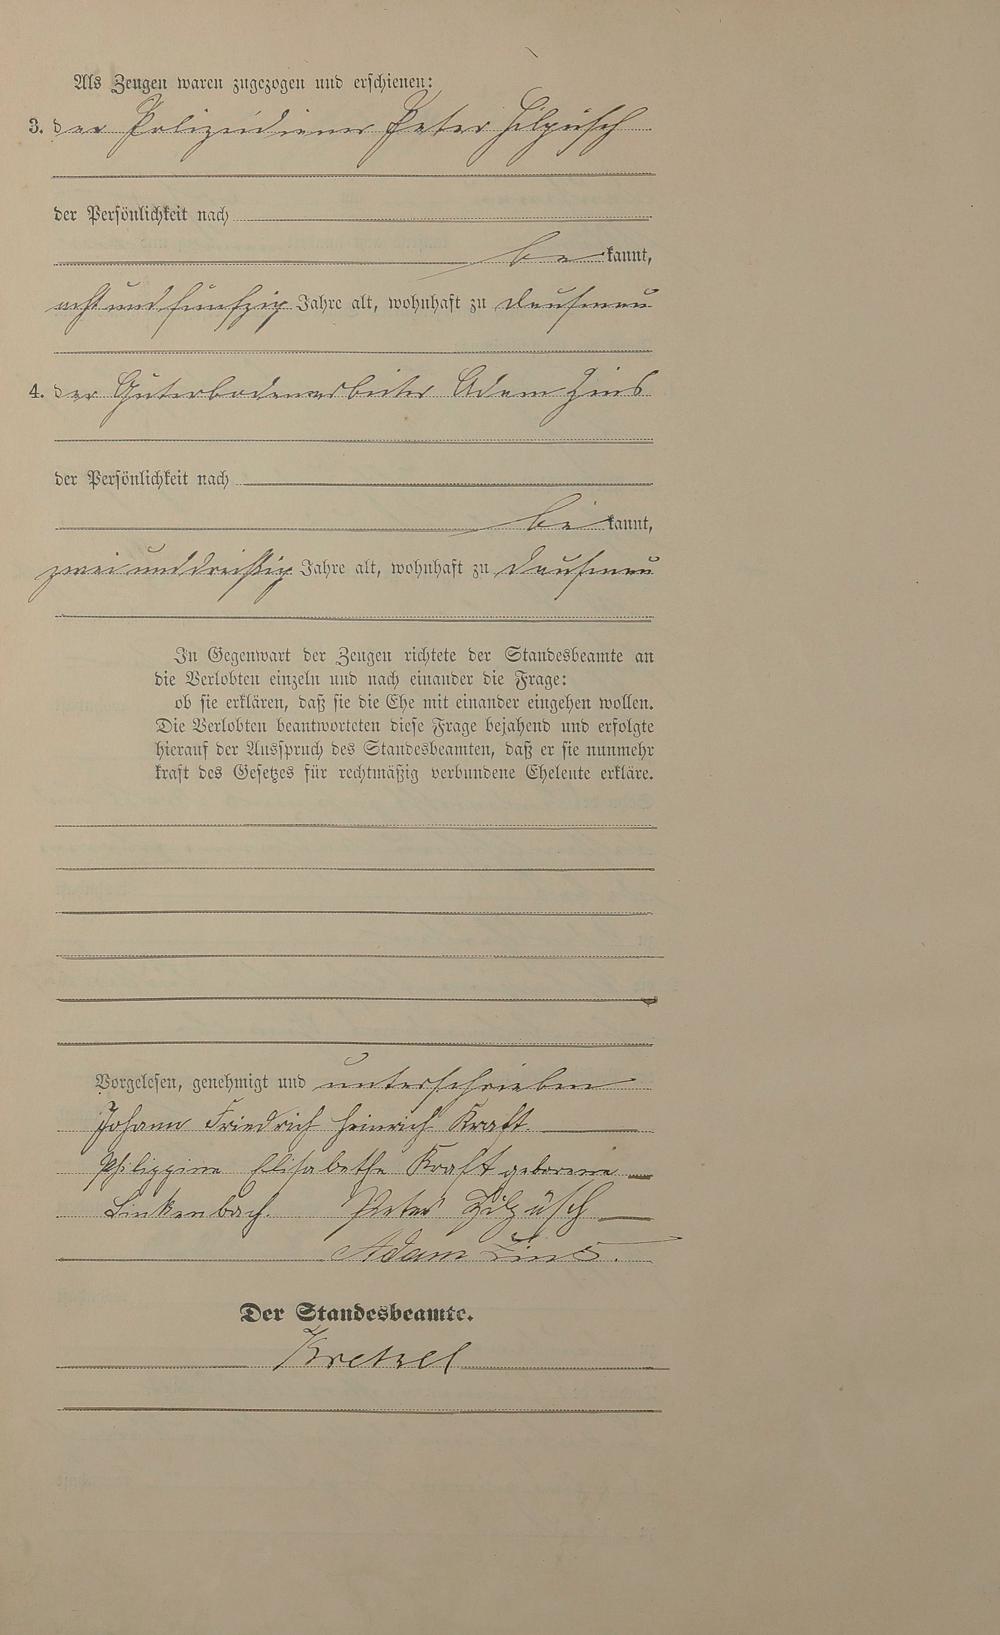 Als Zeugen waren zugezogen und erschienen:
3. der Polizeidiener Peter Hilpüsch
der Persönlichkeit nach
be kannt,
acht und fünfzig Jahre alt, wohnhaft zu Dausenau
4. der Güterbodenarbeiter Adam Zins
der Persönlichkeit nach
be kannt,
zwei und dreißig Jahre alt, wohnhaft zu Dausenau
In Gegenwart der Zeugen richtete der Standesbeamte an
die Verlobten einzeln und nach einander die Frage:
ob sie erklären, daß sie die Ehe mit einander eingehen wollen.
Die Verlobten beantworteten diese Frage bejahend und erfolgte
hierauf der Ausspruch des Standesbeamten, daß er sie nunmehr
kraft des Gesetzes für rechtmäßig verbundene Eheleute erkläre.
Vorgelesen, genehmigt und unterschrieben
Johann Friedrich Heinrich Kraft.
Philippine Elisabethe Kraft geborene
Linkenbach. Peter Hilpüsch
Adam Zins.
Der Standesbeamte.